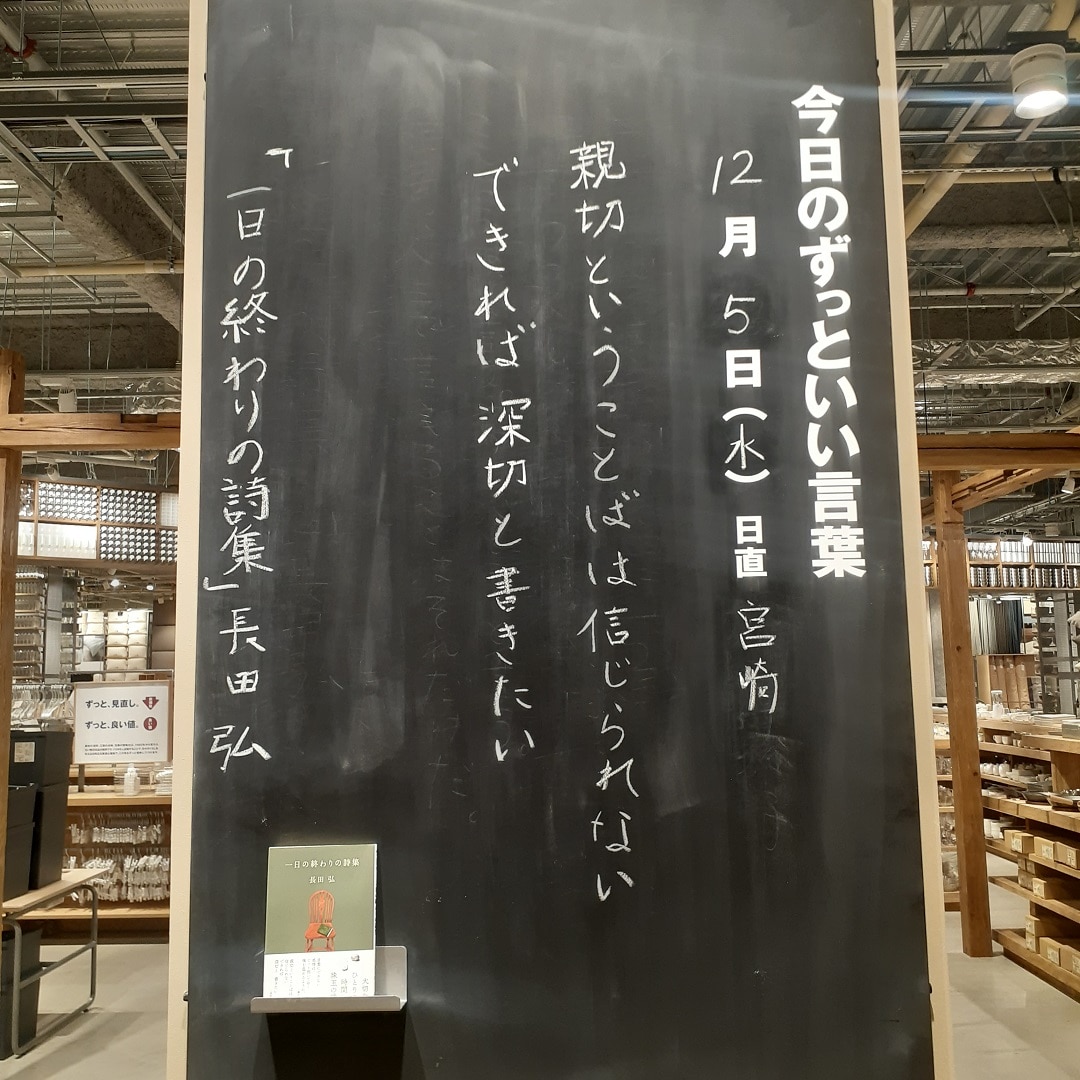 今日のずっといい言葉
12月5日(水) 日直 宮崎
親切ということばは信じられない
できれば深切と書きたい
「一日の終わりの詩集」長田弘
ずっと、見直し。
ずっと、良い値。
一日の終わりの詩集
長田 弘